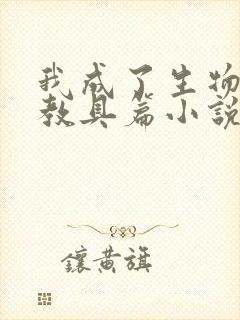 我成了生物
教具篇小說
鑲黃旗